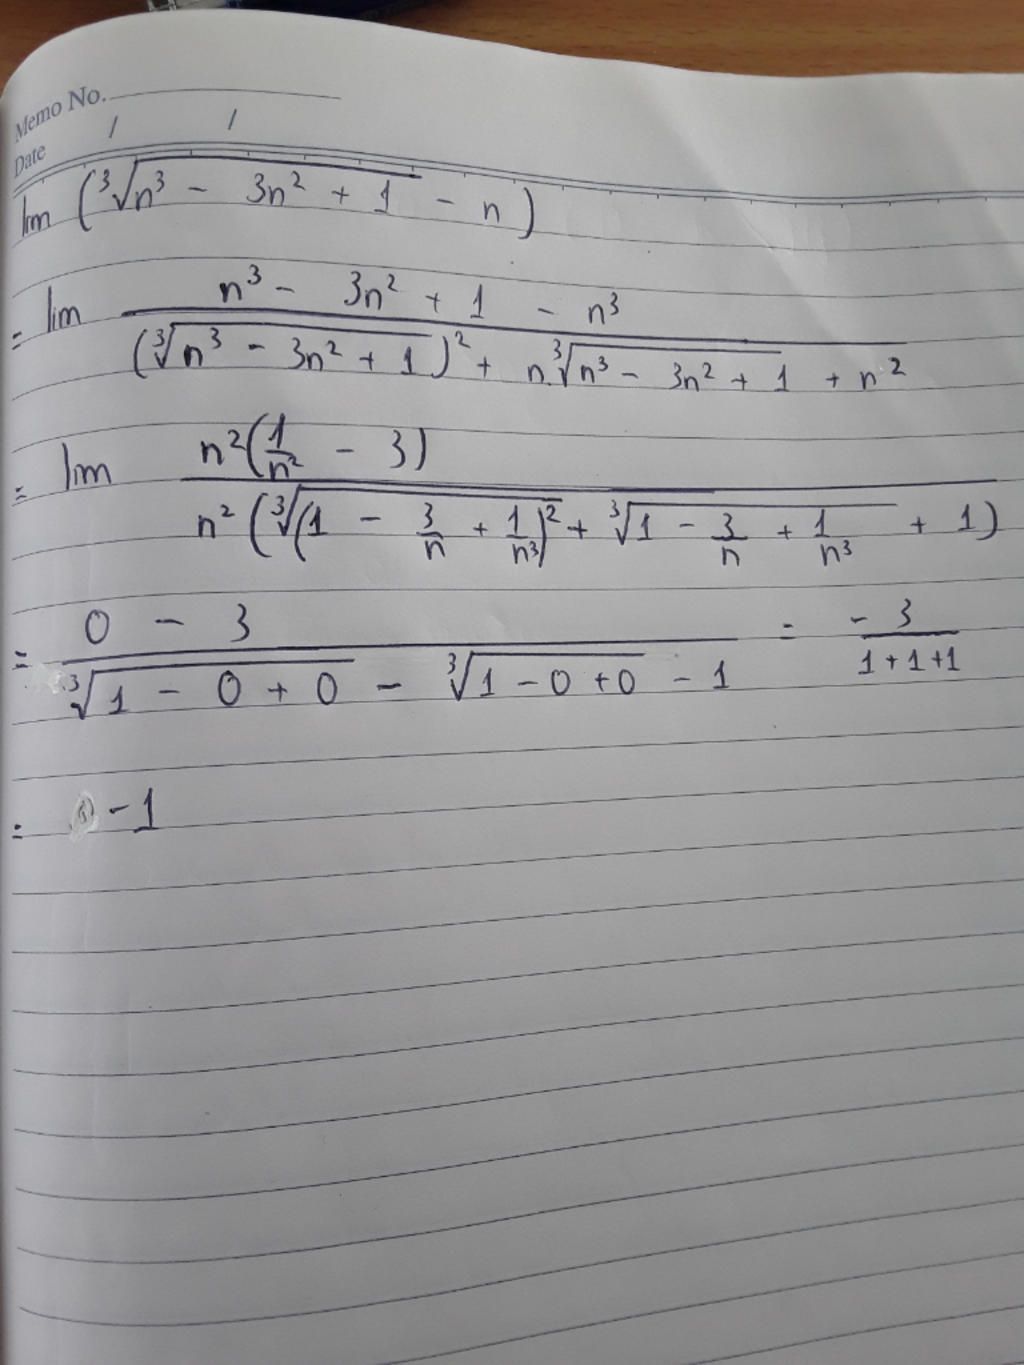 Memo No.
Date / /
lim (∛(n³ - 3n² + 1) - n)
= lim (n³ - 3n² + 1 - n³) / ((∛(n³ - 3n² + 1))² + n.∛(n³ - 3n² + 1) + n²)
= lim n²(1/n² - 3) / n²(∛((1 - 3/n + 1/n³)²) + ∛(1 - 3/n + 1/n³) + 1)
= (0 - 3) / (∛(1 - 0 + 0) - ∛(1 - 0 + 0) - 1) = -3 / (1 + 1 + 1)
= -1